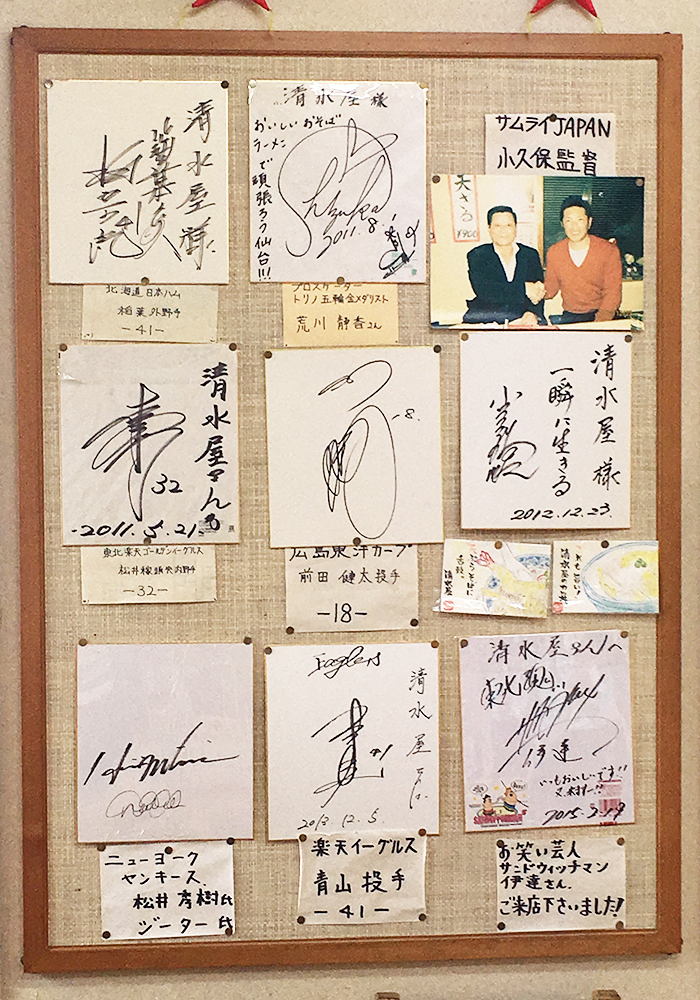 清水屋様
北海道日本ハム
稲葉外野手
-41-
清水屋様
おいしいおそば
ラーメン
で頑張ろう仙台!!!
Shizuka
2011.8.
プロスケーター
トリノ五輪金メダリスト
荒川静香さん
サムライJAPAN
小久保監督
天ざる
¥900
清水屋さん江
32
-2011.5.21.
東北楽天ゴールデンイーグルス
-32-
-18.
広島東洋カープ
前田健太投手
-18-
清水屋様
一瞬に生きる
2012.12.23.
清水屋
ニューヨーク
ヤンキース
松井秀樹氏
ジーター氏
Eagles
清水屋さんへ
41
2013.12.5.
楽天イーグルス
青山投手
-41-
清水屋さんへ
東北魂
伊達
いつもおいしいです!!
2015.2.19
お笑い芸人
サンドウィッチマン
伊達さん
ご来店下さいました!